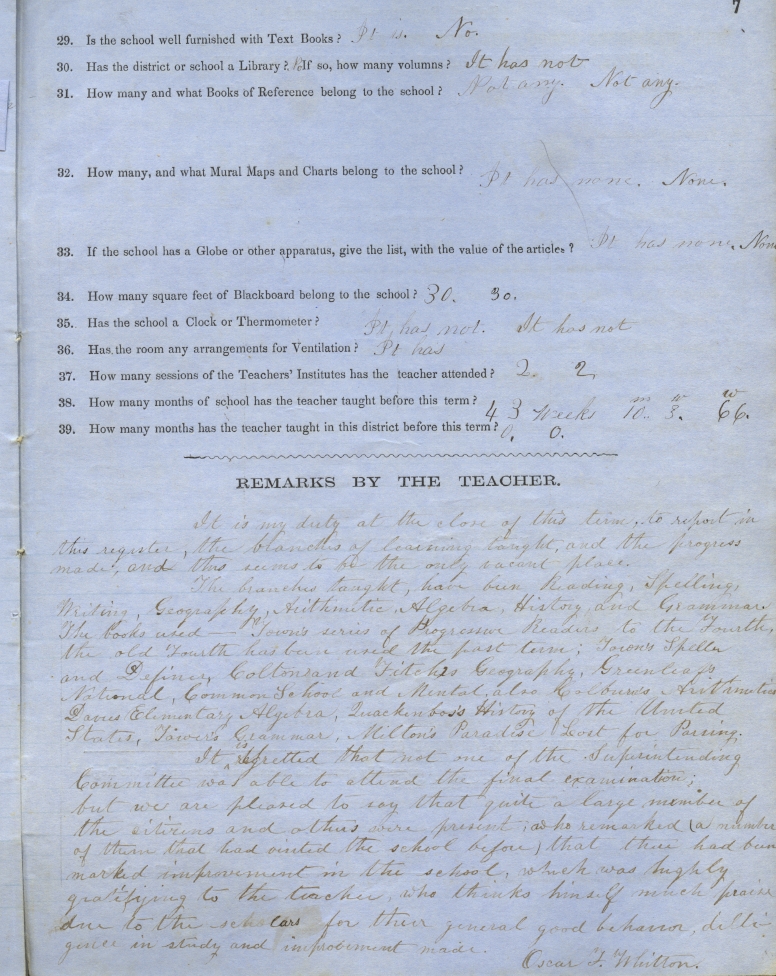 7
29. Is the school well furnished with Text Books? It is. No.
30. Has the district or school a Library? If so, how many volumns? It has not
31. How many and what Books of Reference belong to the school? Not any. Not any.
32. How many, and what Mural Maps and Charts belong to the school? It has none. None.
33. If the school has a Globe or other apparatus, give the list, with the value of the articles? It has none. Non
34. How many square feet of Blackboard belong to the school? 30. 30.
35. Has the school a Clock or Thermometer? It has not. It has not
36. Has the room any arrangements for Ventilation? It has
37. How many sessions of the Teachers' Institutes has the teacher attended? 2. 2.
38. How many months of school has the teacher taught before this term? 43 Weeks 10 m 3. w 66. w
39. How many months has the teacher taught in this district before this term? 0. 0.
REMARKS BY THE TEACHER.
It is my duty at the close of this term, to report in
this register, the branches of learning taught, and the progress
made, and this seems to be the only vacant place.
The branches taught, have been Reading, Spelling,
Writing, Geography, Arithmetic, Algebra, History and Grammar.
The books used — Town's series of Progressive Readers to the Fourth,
the old Fourth has been used the past term; Town's Speller
and Definer, Colton and Fitch's Geography, Greenleaf's
National, Common School and Mental, also Colburn's Arithmetics
Davies Elementary Algebra, Quackenbos's History of the United
States, Tower's Grammar, Milton's Paradise Lost for Parcing.
It is regretted that not one of the Superintending
Committee was able to attend the final examination;
but we are pleased to say that quite a large member of
the citizens and others were present; who remarked (a number
of them that had visited the school before) that their had been
marked improvement in the school, which was highly
gratifying to the teacher, who thinks himself much praise
due to the scholars for their general good behavior, dilli-
gence in study and improvement made.
Oscar F. Whitton.